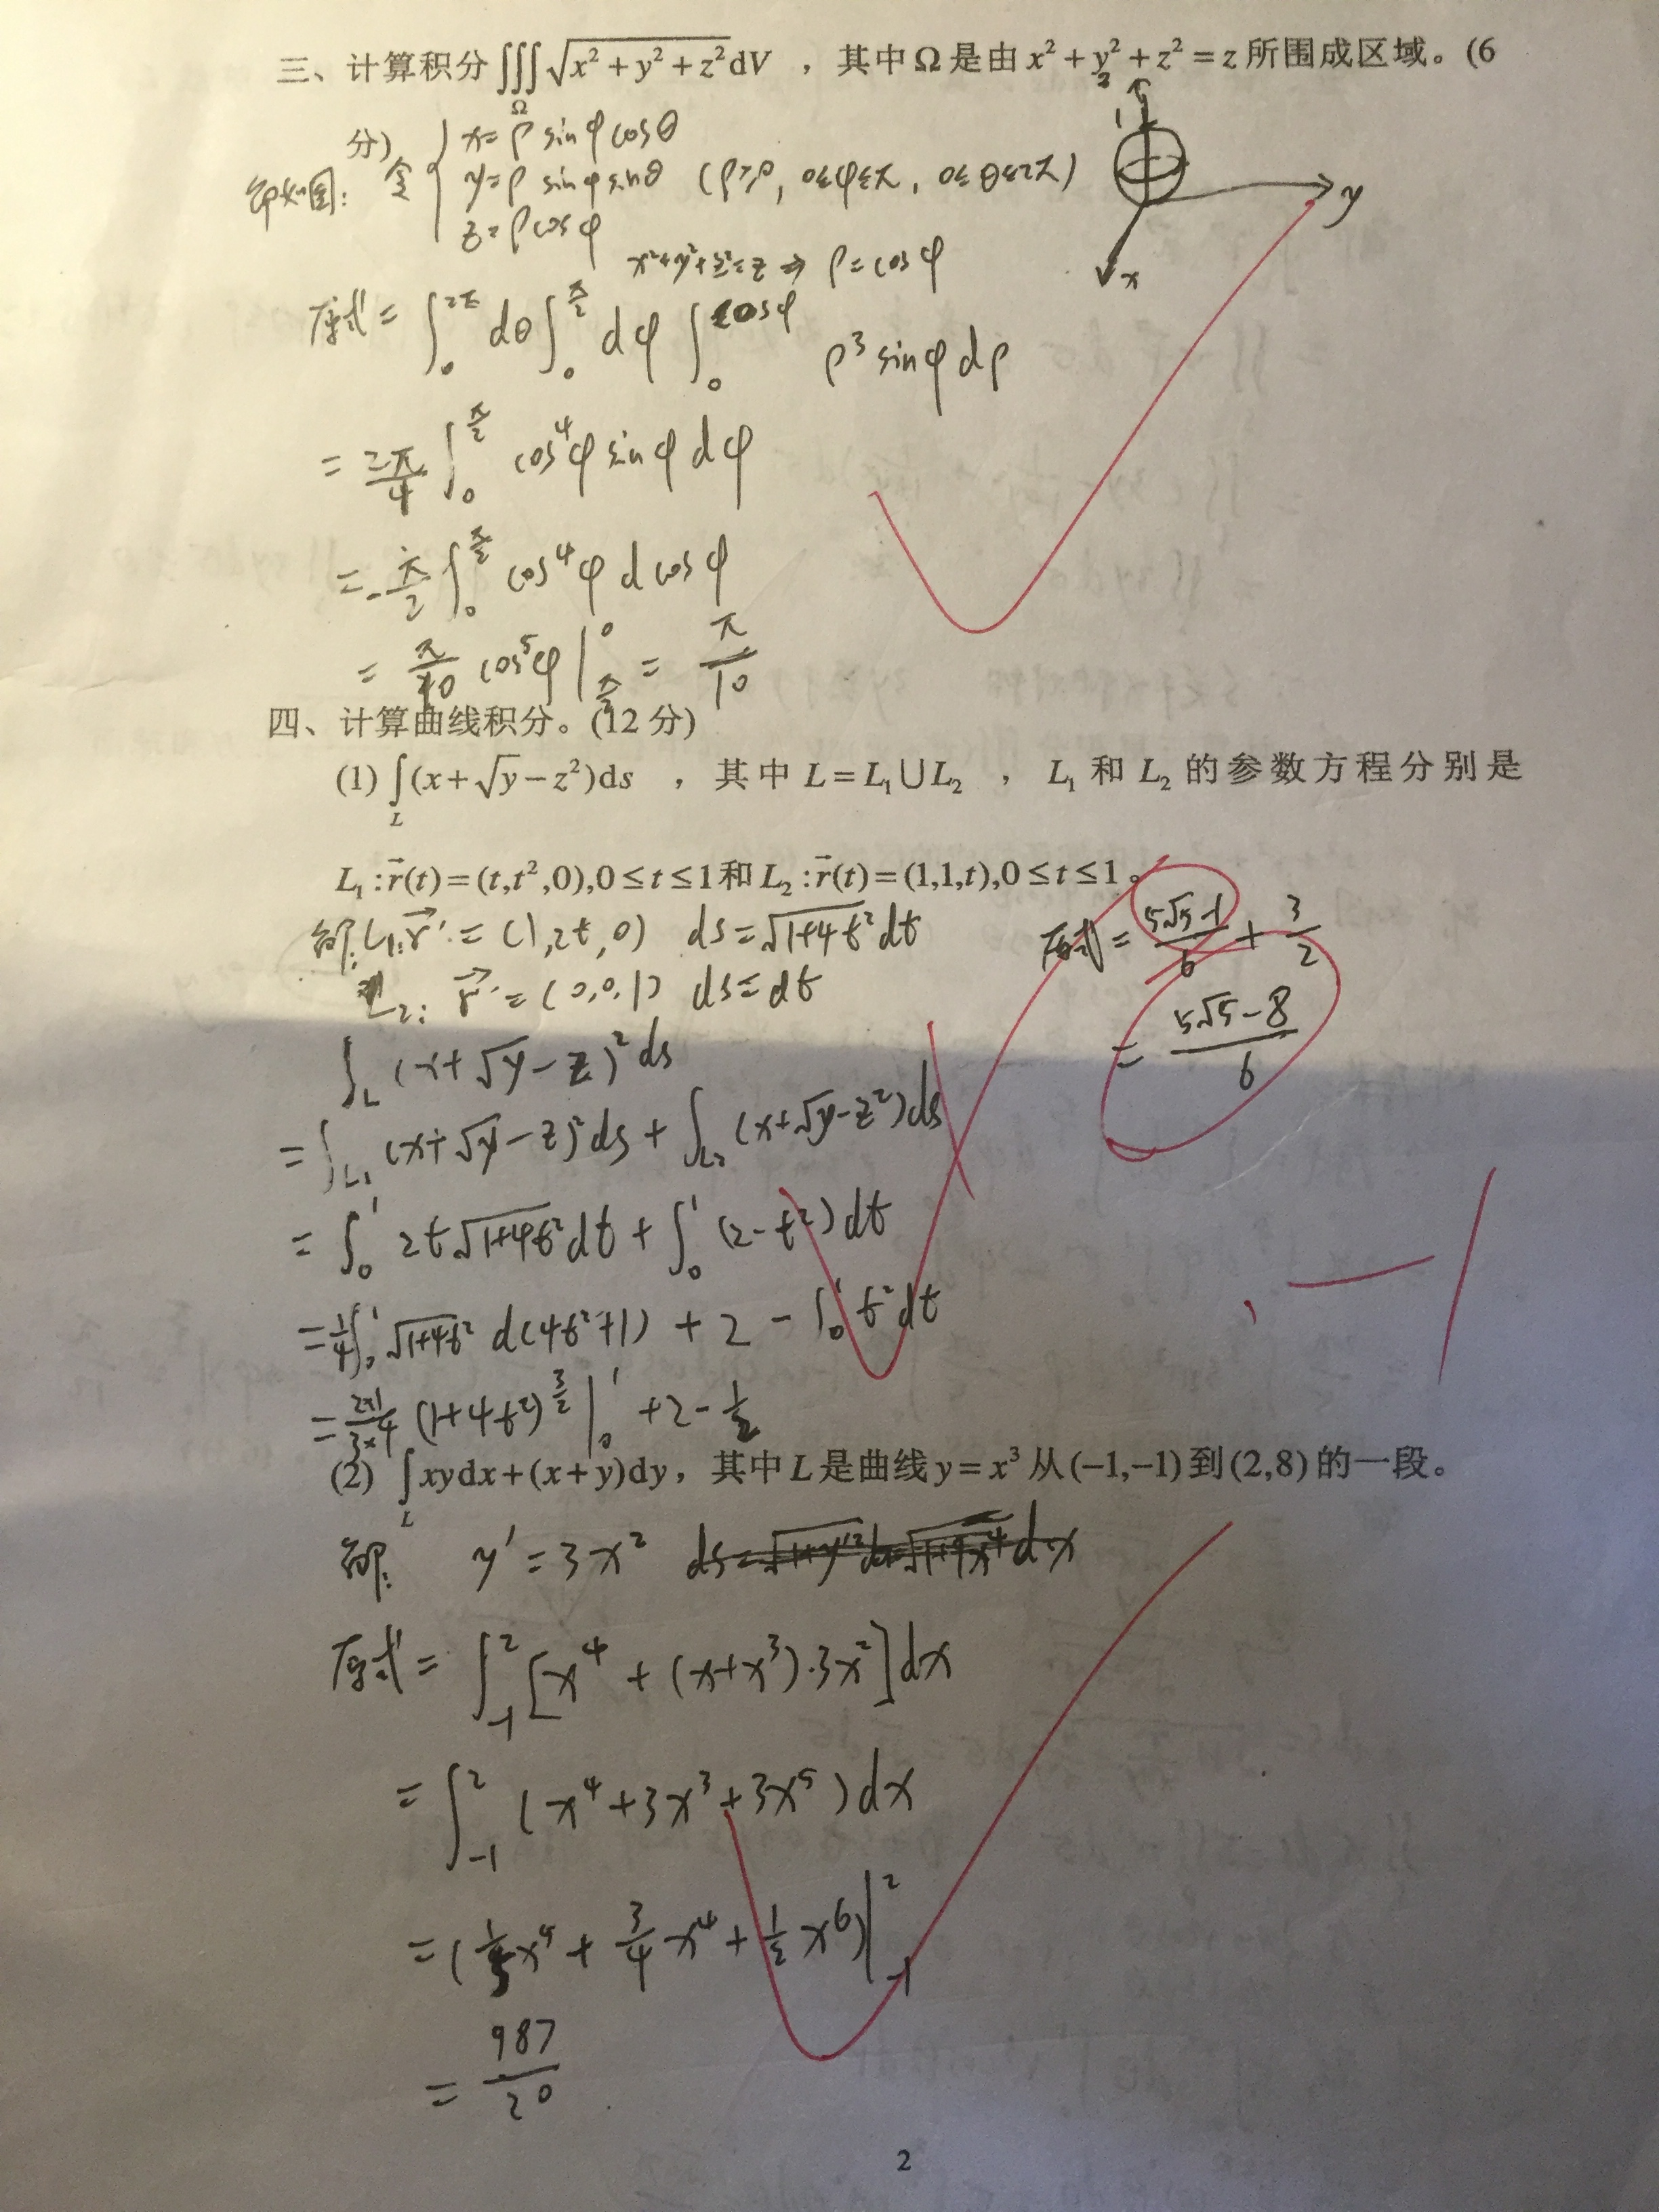 三、计算积分∭_Ω √(x²+y²+z²)dV ，其中Ω是由x²+y²+z²=z所围成区域。(6
分)
解如图: 令 { x=ρ sinφ cosθ
y=ρ sinφ sinθ (ρ≥0, 0≤φ≤π, 0≤θ≤2π)
z=ρcosφ
x²+y²+z²=z ⇒ ρ=cosφ
z
1
y
x
原式=∫₀^{2π} dθ ∫₀^{π/2} dφ ∫₀^{cosφ} ρ³ sinφ dρ
= 2π/4 ∫₀^{π/2} cos⁴φ sinφ dφ
= -π/2 ∫₀^{π/2} cos⁴φ d cosφ
= π/10 cos⁵φ |_{π/2}^0 = π/10
四、计算曲线积分。(12分)
(1) ∫_L (x+√y−z²)ds ，其中L=L₁∪L₂ ， L₁和L₂的参数方程分别是
L₁:r⃗(t)=(t,t²,0),0≤t≤1和L₂:r⃗(t)=(1,1,t),0≤t≤1。
解: L₁: r⃗'=(1,2t,0) ds=√(1+4t²)dt
L₂: r⃗'=(0,0,1) ds=dt
∫_L (x+√y−z)²ds
=∫_{L₁} (x+√y−z)²ds+∫_{L₂} (x+√y−z²)ds
=∫₀¹ 2t√(1+4t²)dt+∫₀¹ (2−t²)dt
=1/4∫₀¹ √(1+4t²) d(4t²+1) + 2 − ∫₀¹ t²dt
=(2×1)/(3×4) (1+4t²)^{3/2} |₀¹ +2−1/2
原式=(5√5−1)/6+3/2
=(5√5−8)/6
−1
(2) ∫_L xydx+(x+y)dy，其中L是曲线y=x³从(−1,−1)到(2,8)的一段。
解: y'=3x² ds=√(1+y'²)dx=√(1+9x⁴)dx
原式=∫_{-1}^2 [x⁴+(x+x³)·3x²]dx
=∫_{-1}^2 (x⁴+3x³+3x⁵)dx
=(1/5x⁵+3/4x⁴+1/2x⁶)|_{-1}^2
=987/20
2